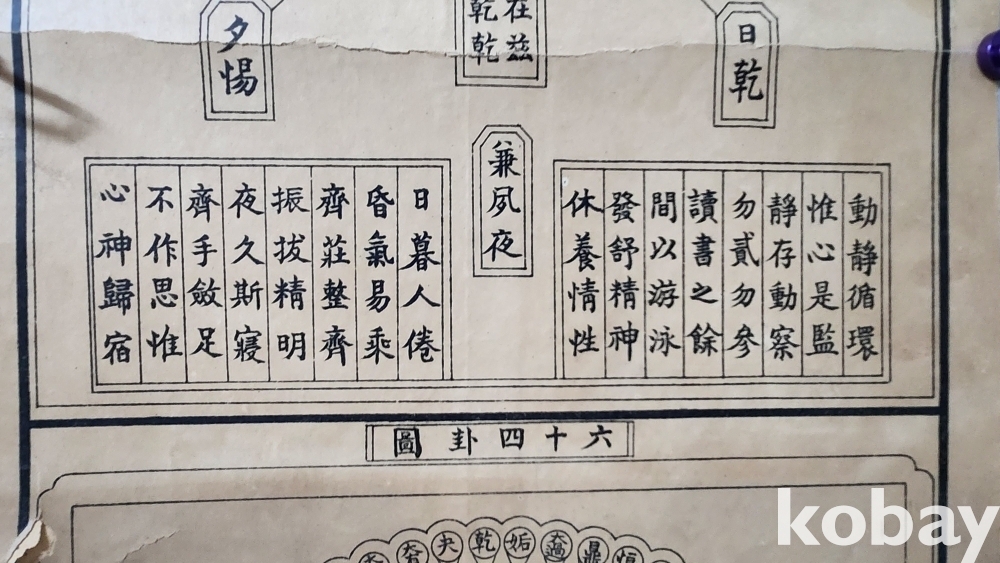 日乾
在茲
乾乾
夕惕
兼夙夜
動靜循環
惟心是監
靜存動察
勿貳勿參
讀書之餘
間以游泳
發舒精神
休養情性
日暮人倦
昏氣易乘
齊莊整齊
振拔精明
夜久斯寢
齊手斂足
不作思惟
心神歸宿
六十四卦圖
恒
鼎
大過
姤
乾
夬
kobay